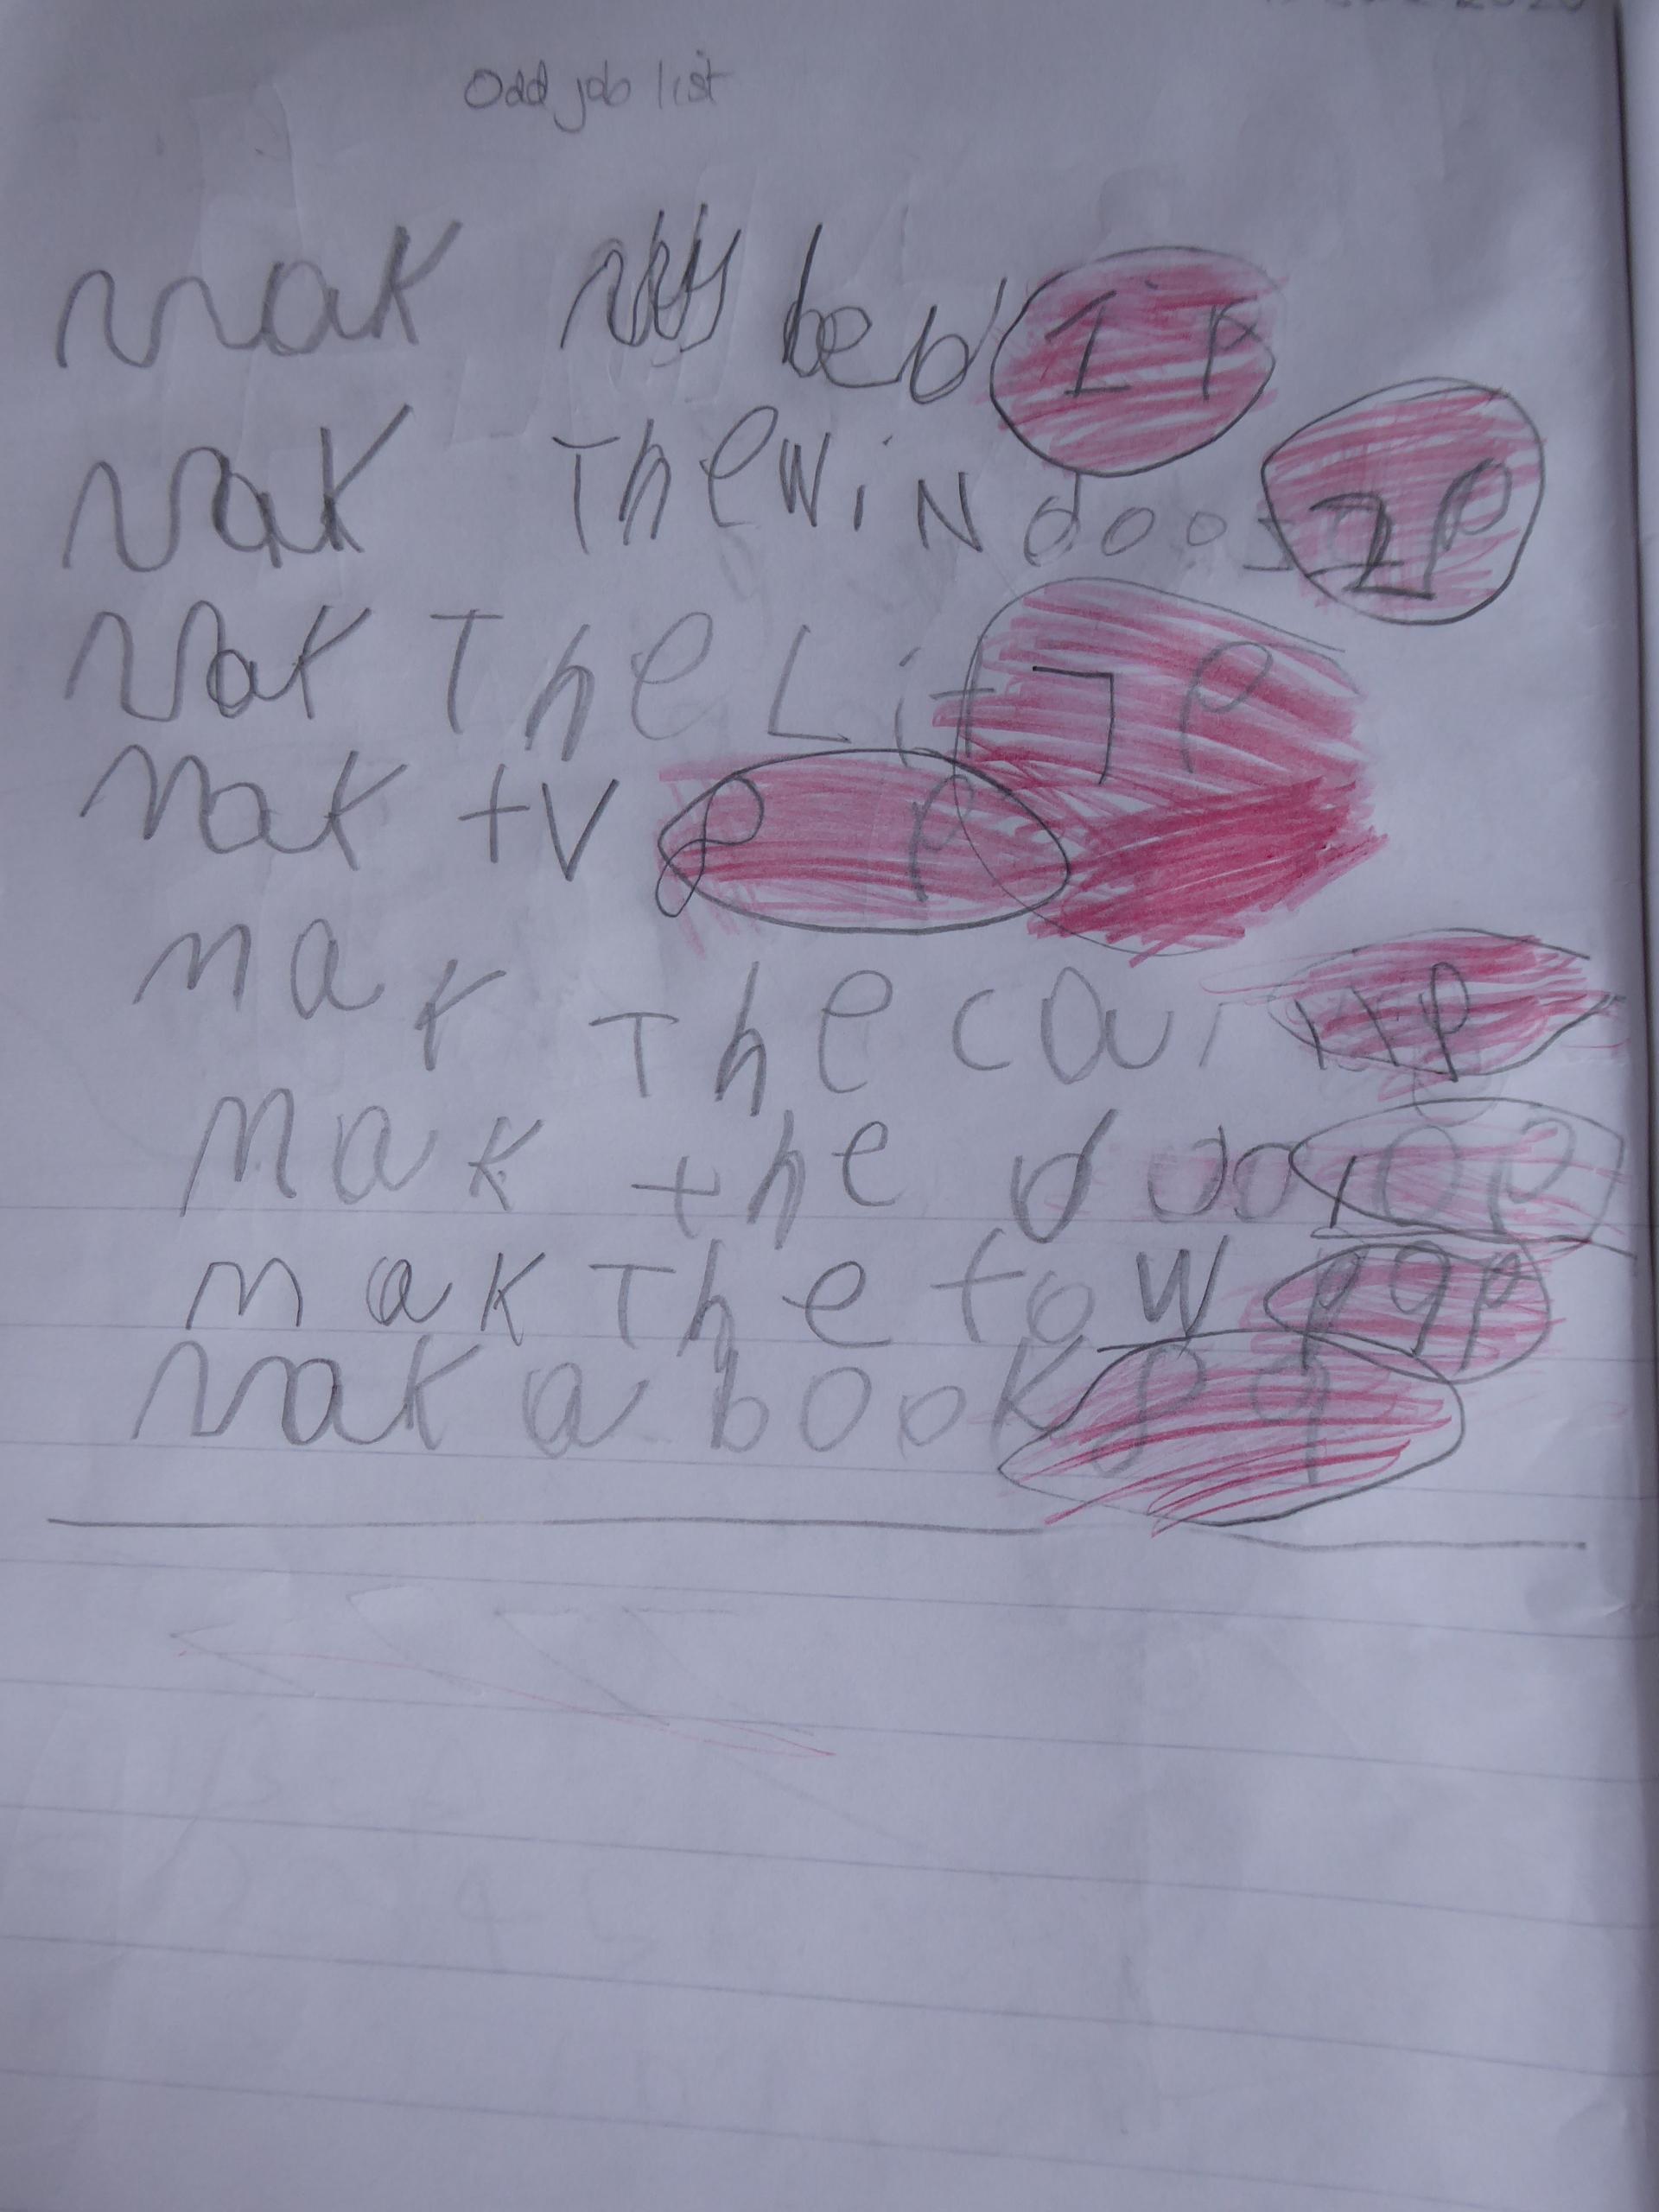 Odd job list
mak my bed 1P
mak The windoos 2P
mak The Lit 7P
mak tv P P
mak The caur 11P
mak the doo 10P
mak The tow P9P
mak a book P9